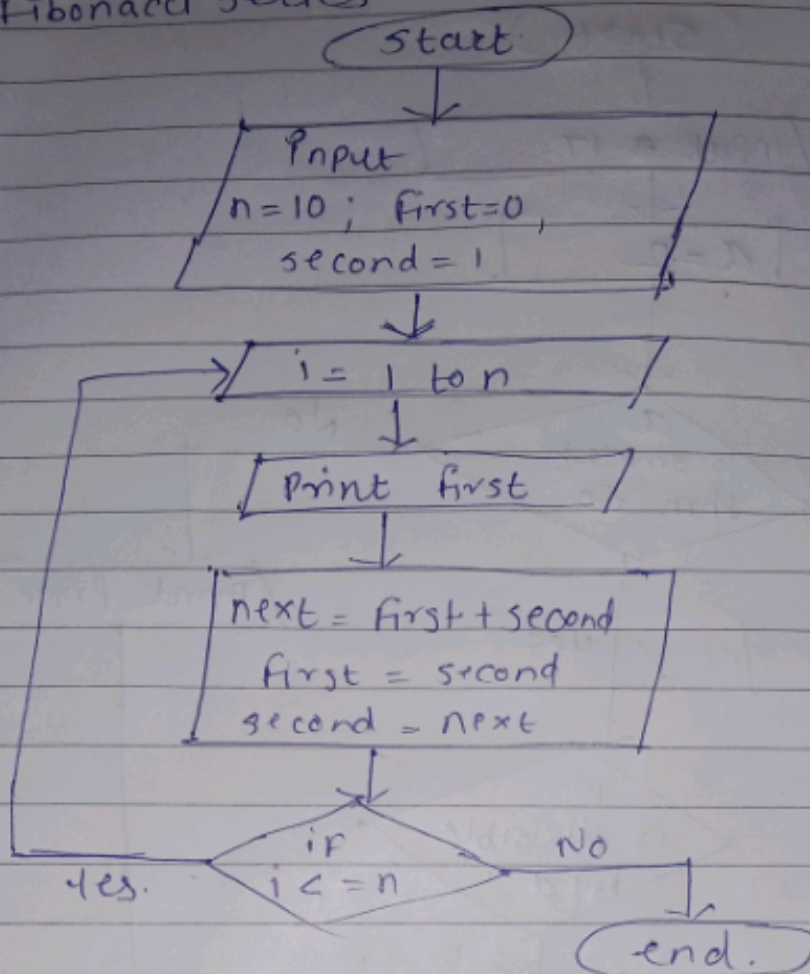 Fibonacci series
start
Input
n=10; first=0,
second=1
i= 1 to n
print first
next = first + second
first = second
second = next
if
i <=n
Yes.
No
end.